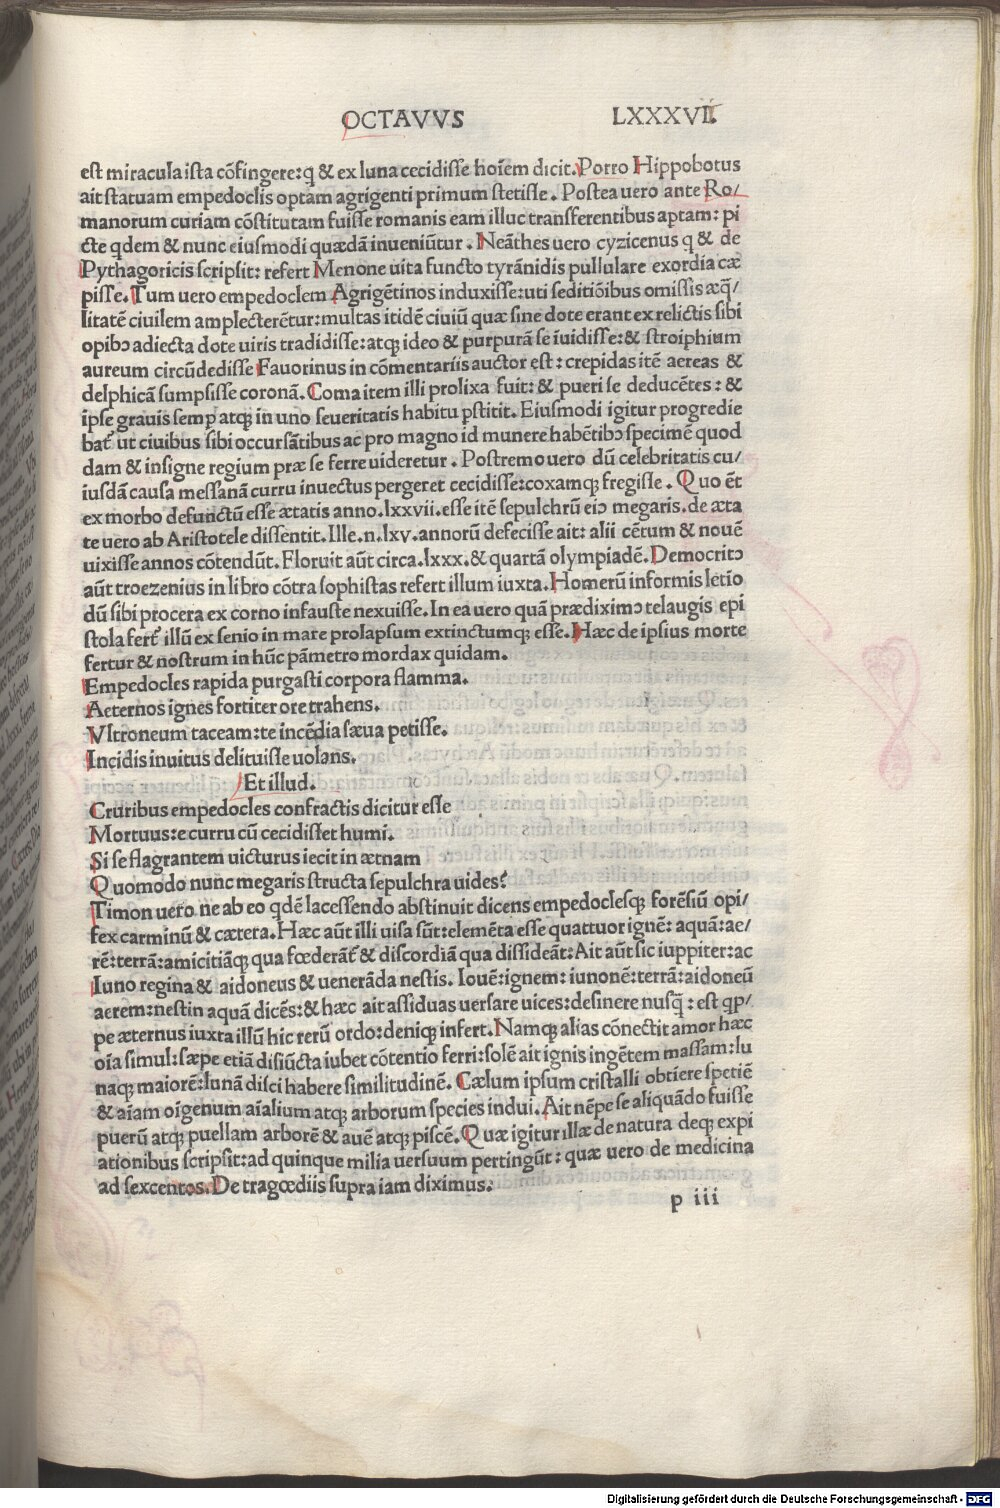 OCTAVVS LXXXVII.
est miracula ista cõfingere: q & ex luna cecidisse hoĩem dicit. Porro Hippobotus
ait statuam empedoclis optam agrigenti primum stetisse. Postea uero ante Ro/
manorum curiam cõstitutam fuisse romanis eam illuc transferentibus aptam: pi
cte qdem & nunc eiusmodi quædã inueniũtur. Neãthes uero cyzicenus q & de
Pythagoricis scripsit: refert Menone uita functo tyrãnidis pullulare exordia cæ
pisse. Tum uero empedoclem Agrigẽtinos induxisse: uti seditiõibus omissis æq̃/
litatẽ ciuilem amplecterẽtur: multas itidẽ ciuiũ quæ sine dote erant ex relictis sibi
opibꝰ adiecta dote uiris tradidisse: atqꝫ ideo & purpurã se iuidisse: & stroiphium
aureum circũdedisse Fauorinus in cõmentariis auctor est: crepidas itẽ aereas &
delphicã sumpsisse coronã. Coma item illi prolixa fuit: & pueri se deducẽtes: &
ipse grauis semꝑ atqꝫ in uno seueritatis habitu pstitit. Eiusmodi igitur progredie
bat̃ ut ciuibus sibi occursãtibus ac pro magno id munere habẽtibꝰ specimẽ quod
dam & insigne regium præ se ferre uideretur. Postremo uero dũ celebritatis cu/
iusdã causa messanã curru inuectus pergeret cecidisse: coxamqꝫ fregisse. Quo ẽt
ex morbo defunctũ esse ætatis anno. lxxvii. esse itẽ sepulchrũ eiꝰ megaris. de æta
te uero ab Aristotele dissentit. Ille. n. lxv. annorũ defecisse ait: alii cẽtum & nouẽ
uixisse annos cõtendũt. Floruit aũt circa. lxxx. & quartã olympiadẽ. Democritꝰ
aũt troezenius in libro cõtra sophistas refert illum iuxta. Homerũ informis letio
dũ sibi procera ex corno infauste nexuisse. In ea uero quã prædiximꝰ telaugis epi
stola fert̃ illũ ex senio in mare prolapsum extinctumqꝫ esse. Hæc de ipsius morte
fertur & nostrum in hũc pãmetro mordax quidam.
Empedocles rapida purgasti corpora flamma.
Aeternos ignes fortiter ore trahens.
Vltroneum taceam: te incẽdia sæua petisse.
Incidis inuitus delituisse uolans.
Et illud.
Cruribus empedocles confractis dicitur esse
Mortuus: e curru cũ cecidisset humi.
Si se flagrantem uicturus iecit in ætnam
Quomodo nunc megaris structa sepulchra uides?
Timon uero ne ab eo qdẽ lacessendo abstinuit dicens empedoclesqꝫ forẽsiũ opi/
fex carminũ & cætera. Hæc aũt illi uisa sũt: elemẽta esse quattuor ignẽ: aquã: ae/
rẽ: terrã: amicitiãqꝫ qua fœderãt̃ & discordiã qua dissideãt: Ait aũt sic iuppiter: ac
Iuno regina & aidoneus & uenerãda nestis. Iouẽ: ignem: iunonẽ: terrã: aidoneũ
aerem: nestin aquã dicẽs: & hæc ait assiduas uersare uices: desinere nusq̃: est qꝑ/
pe æternus iuxta illũ hic rerũ ordo: deniqꝫ infert. Namqꝫ alias cõnectit amor hæc
oĩa simul: sæpe etiã disiũcta iubet cõtentio ferri: solẽ ait ignis ingẽtem massam: lu
naqꝫ maiorẽ: lunã disci habere similitudinẽ. Cælum ipsum cristalli obtiere spetiẽ
& aĩam oĩgenum aĩalium atqꝫ arborum species indui. Ait nẽpe se aliquãdo fuisse
puerũ atqꝫ puellam arborẽ & auẽ atqꝫ piscẽ. Quæ igitur illæ de natura deqꝫ expi
ationibus scripsit: ad quinque milia uersuum pertingũt: quæ uero de medicina
ad sexcentos. De tragœdiis supra iam diximus:
p iii
Digitalisierung gefördert durch die Deutsche Forschungsgemeinschaft - DFG